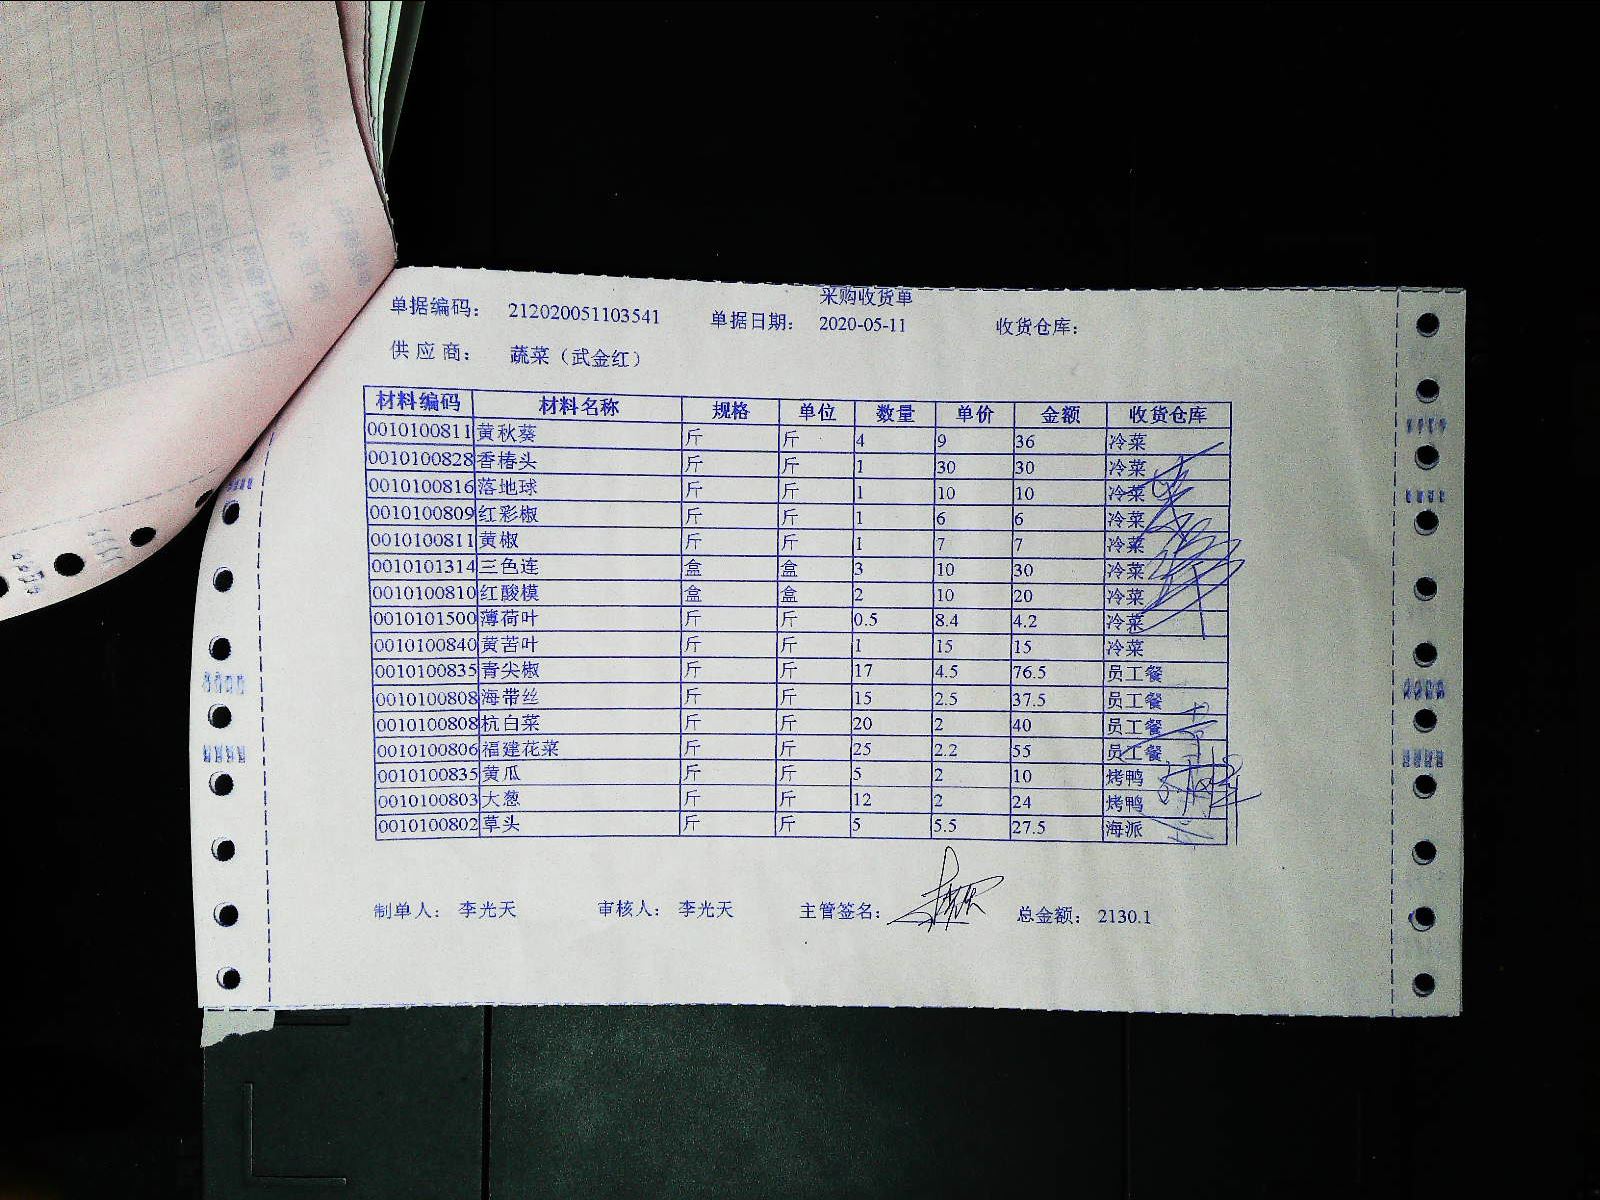 采购收货单
单据编码： 212020051103541 单据日期： 2020-05-11 收货仓库：
供应商： 蔬菜（武金红）
材料编码 材料名称 规格 单位 数量 单价 金额 收货仓库
0010100811 黄秋葵 斤 斤 4 9 36 冷菜
0010100828 香椿头 斤 斤 1 30 30 冷菜
0010100816 落地球 斤 斤 1 10 10 冷菜
0010100809 红彩椒 斤 斤 1 6 6 冷菜
0010100811 黄椒 斤 斤 1 7 7 冷菜
0010101314 三色连 盒 盒 3 10 30 冷菜
0010100810 红酸模 盒 盒 2 10 20 冷菜
0010101500 薄荷叶 斤 斤 0.5 8.4 4.2 冷菜
0010100840 黄苦叶 斤 斤 1 15 15 冷菜
0010100835 青尖椒 斤 斤 17 4.5 76.5 员工餐
0010100808 海带丝 斤 斤 15 2.5 37.5 员工餐
0010100808 杭白菜 斤 斤 20 2 40 员工餐
0010100806 福建花菜 斤 斤 25 2.2 55 员工餐
0010100835 黄瓜 斤 斤 5 2 10 烤鸭
0010100803 大葱 斤 斤 12 2 24 烤鸭
0010100802 草头 斤 斤 5 5.5 27.5 海派
制单人： 李光天 审核人： 李光天 主管签名： 总金额： 2130.1